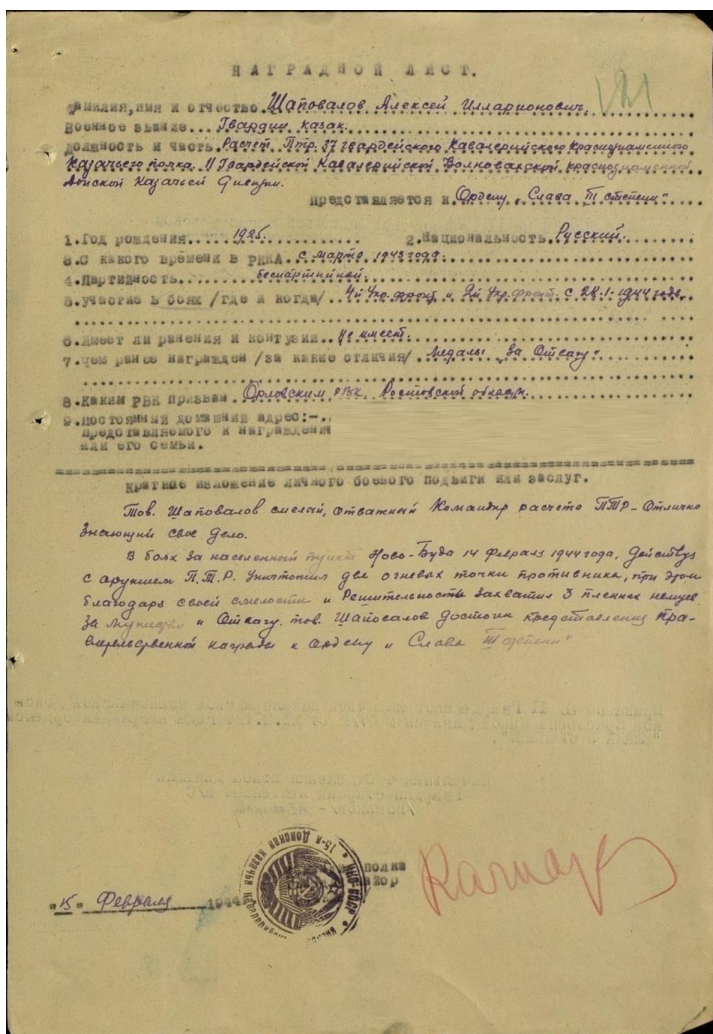 НАГРАДНОЙ ЛИСТ.
121
Фамилия, имя и отчество Шаповалов Алексей Илларионович.
Военное звание... Гвардии казак.
Должность и часть Расчет Птр. 37 гвардейского Кавалерийского Краснознаменного
Казачьего полка. 11 Гвардейской Кавалерийской Волновахской, краснознаменной
Донской Казачьей Дивизии.
Представляется к Ордену "Слава III степени"
1. Год рождения... 1925. 2. Национальность Русский.
3. С какого времени в РККА. с марта 1943 года.
4. Партийность беспартийный.
5. Участие в боях /где и когда/ 4й Укр. фронт и 2й Укр. фронт. с 28.1.1944 года.
6. Имеет ли ранения и контузии.. не имеет.
7. Чем ранее награжден /за какие отличия/ Медаль "За Отвагу"
8. Каким РВК призван Орловским РВК. Ростовской области.
9. Постоянный домашний адрес:-..
представляемого к награждения
или его семьи.
Краткое изложение личного боевого подвига или заслуг.
Тов. Шаповалов смелай, отважный Командир расчета ПТР-Отлично
Знающий свое дело.
В боях за населенный пункт Ново-Буда 14 Февраля 1944 года, Действуя
с оружием П.Т.Р. Уничтожил две огневых точки противника, при этом
благодаря своей смелости и Решительности захватил 3 пленных немцев
За мужество и Отвагу. тов. Шаповалов Достоин представления Пра-
вительственной награды к ордену и Слава III степени"
полка
"15" Февраля 1944
15-я Донская Казачья
НКО-СССР